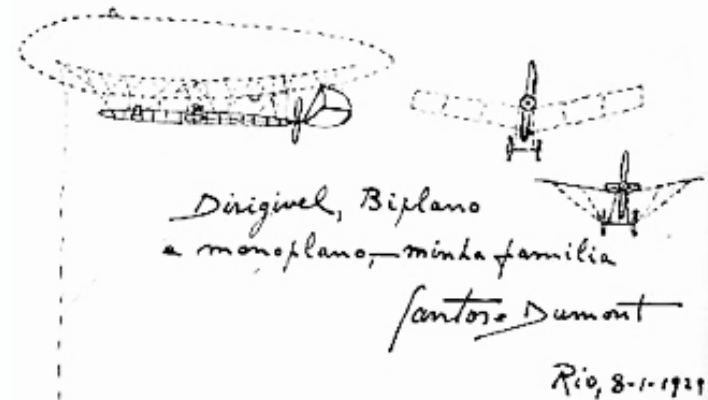 Dirigivel, Biplano
e monoplano, — minha familia
Santos = Dumont
Rio, 8-1-1929